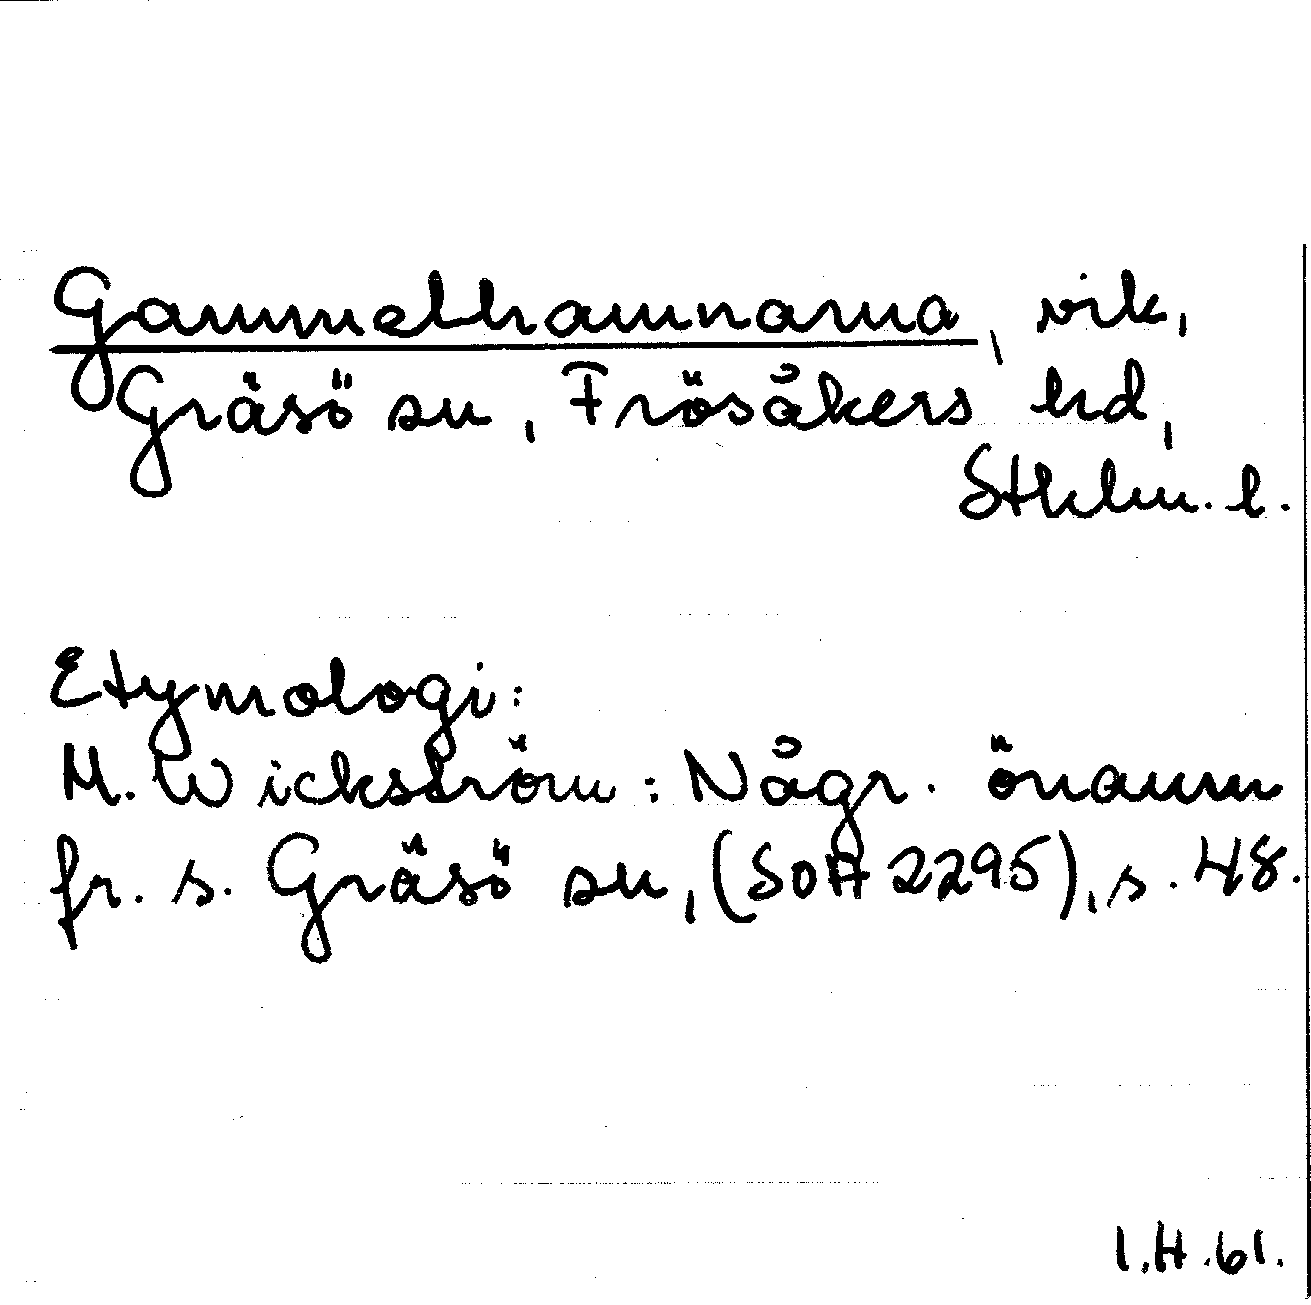 Gammelhamnarna, vik,
Gräsö sn, Frösåkers hd,
Sthlm. l.
Etymologi:
M. Wickström: Någr. önamn
fr. s. Gräsö sn, (SOA 2295), s. 48.
I.H.61.